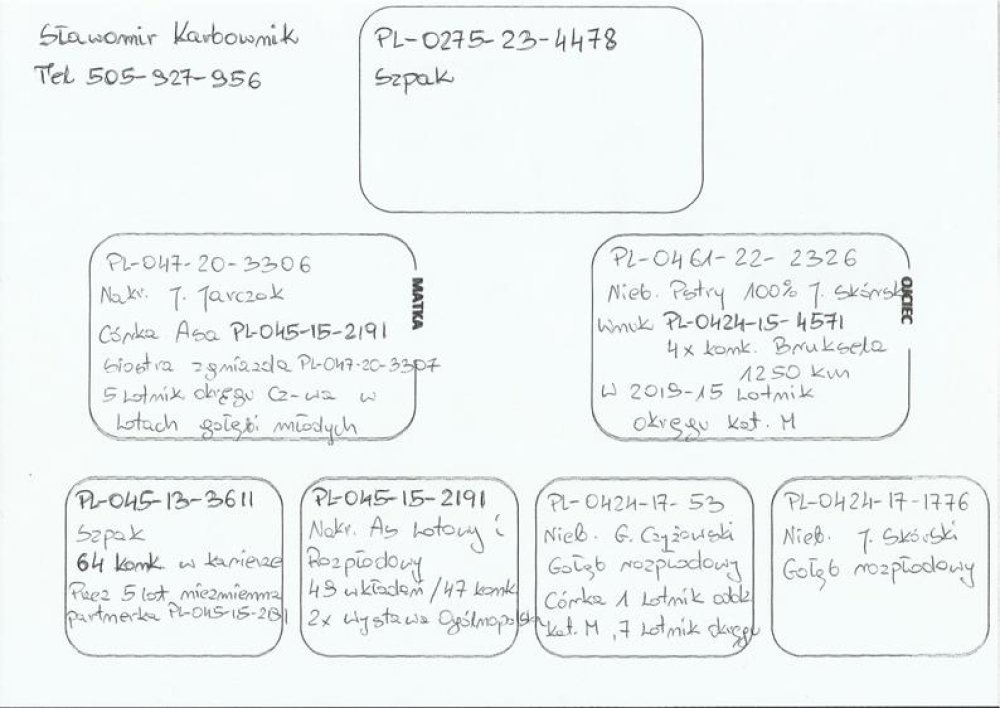 Sławomir Karbownik
Tel 505-927-956
PL-0275-23-4478
Szpak
PL-047-20-3306
Nakr. J. Jarczok
Córka Asa PL-045-15-2191
Siostra z gniazda PL-047-20-3307
5 Lotnik okręgu Cz-wa w
Lotach gołębi młodych
MATKA
PL-0461-22-2326
Nieb. Pstry 100% J. Skórski
Wnuk PL-0424-15-4571
4x konk. Bruksela
1250 km
W 2019-15 Lotnik
okręgu kat. M
OJCIEC
PL-045-13-3611
Szpak
64 konk. w karierze
Przez 5 lat niezmienna
partnerka PL-045-15-2191
PL-045-15-2191
Nakr. As Lotowy i
Rozpłodowy
49 wkładań/47 konk
2x Wystawa Ogólnopolska
PL-0424-17-53
Nieb. G. Czyżowski
Gołąb rozpłodowy
Córka 1 Lotnik oddz.
kat. M, 7 Lotnik okręgu
PL-0424-17-1776
Nieb. J. Skórski
Gołąb rozpłodowy